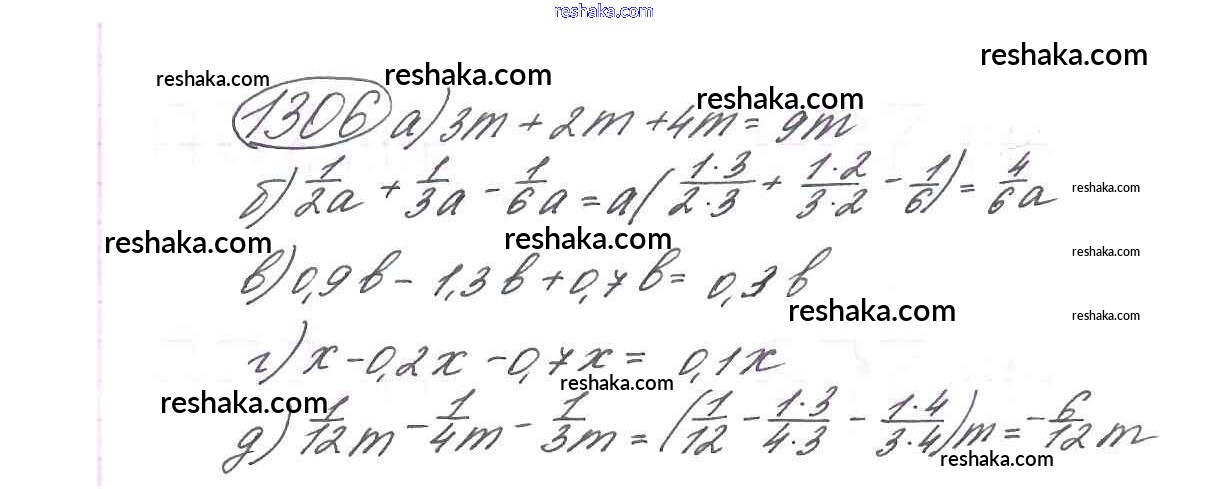 reshaka.com
reshaka.com
reshaka.com reshaka.com
reshaka.com
1306 а) 3m + 2m + 4m = 9m
б) 1/2 a + 1/3 a - 1/6 a = a( 1·3/2·3 + 1·2/3·2 - 1/6 ) = 4/6 a
reshaka.com
reshaka.com reshaka.com
reshaka.com
в) 0,9b - 1,3b + 0,7b = 0,3b
reshaka.com
reshaka.com
г) x - 0,2x - 0,7x = 0,1x
reshaka.com
reshaka.com
д) 1/12 m - 1/4 m - 1/3 m = ( 1/12 - 1·3/4·3 - 1·4/3·4 )m = - 6/12 m
reshaka.com